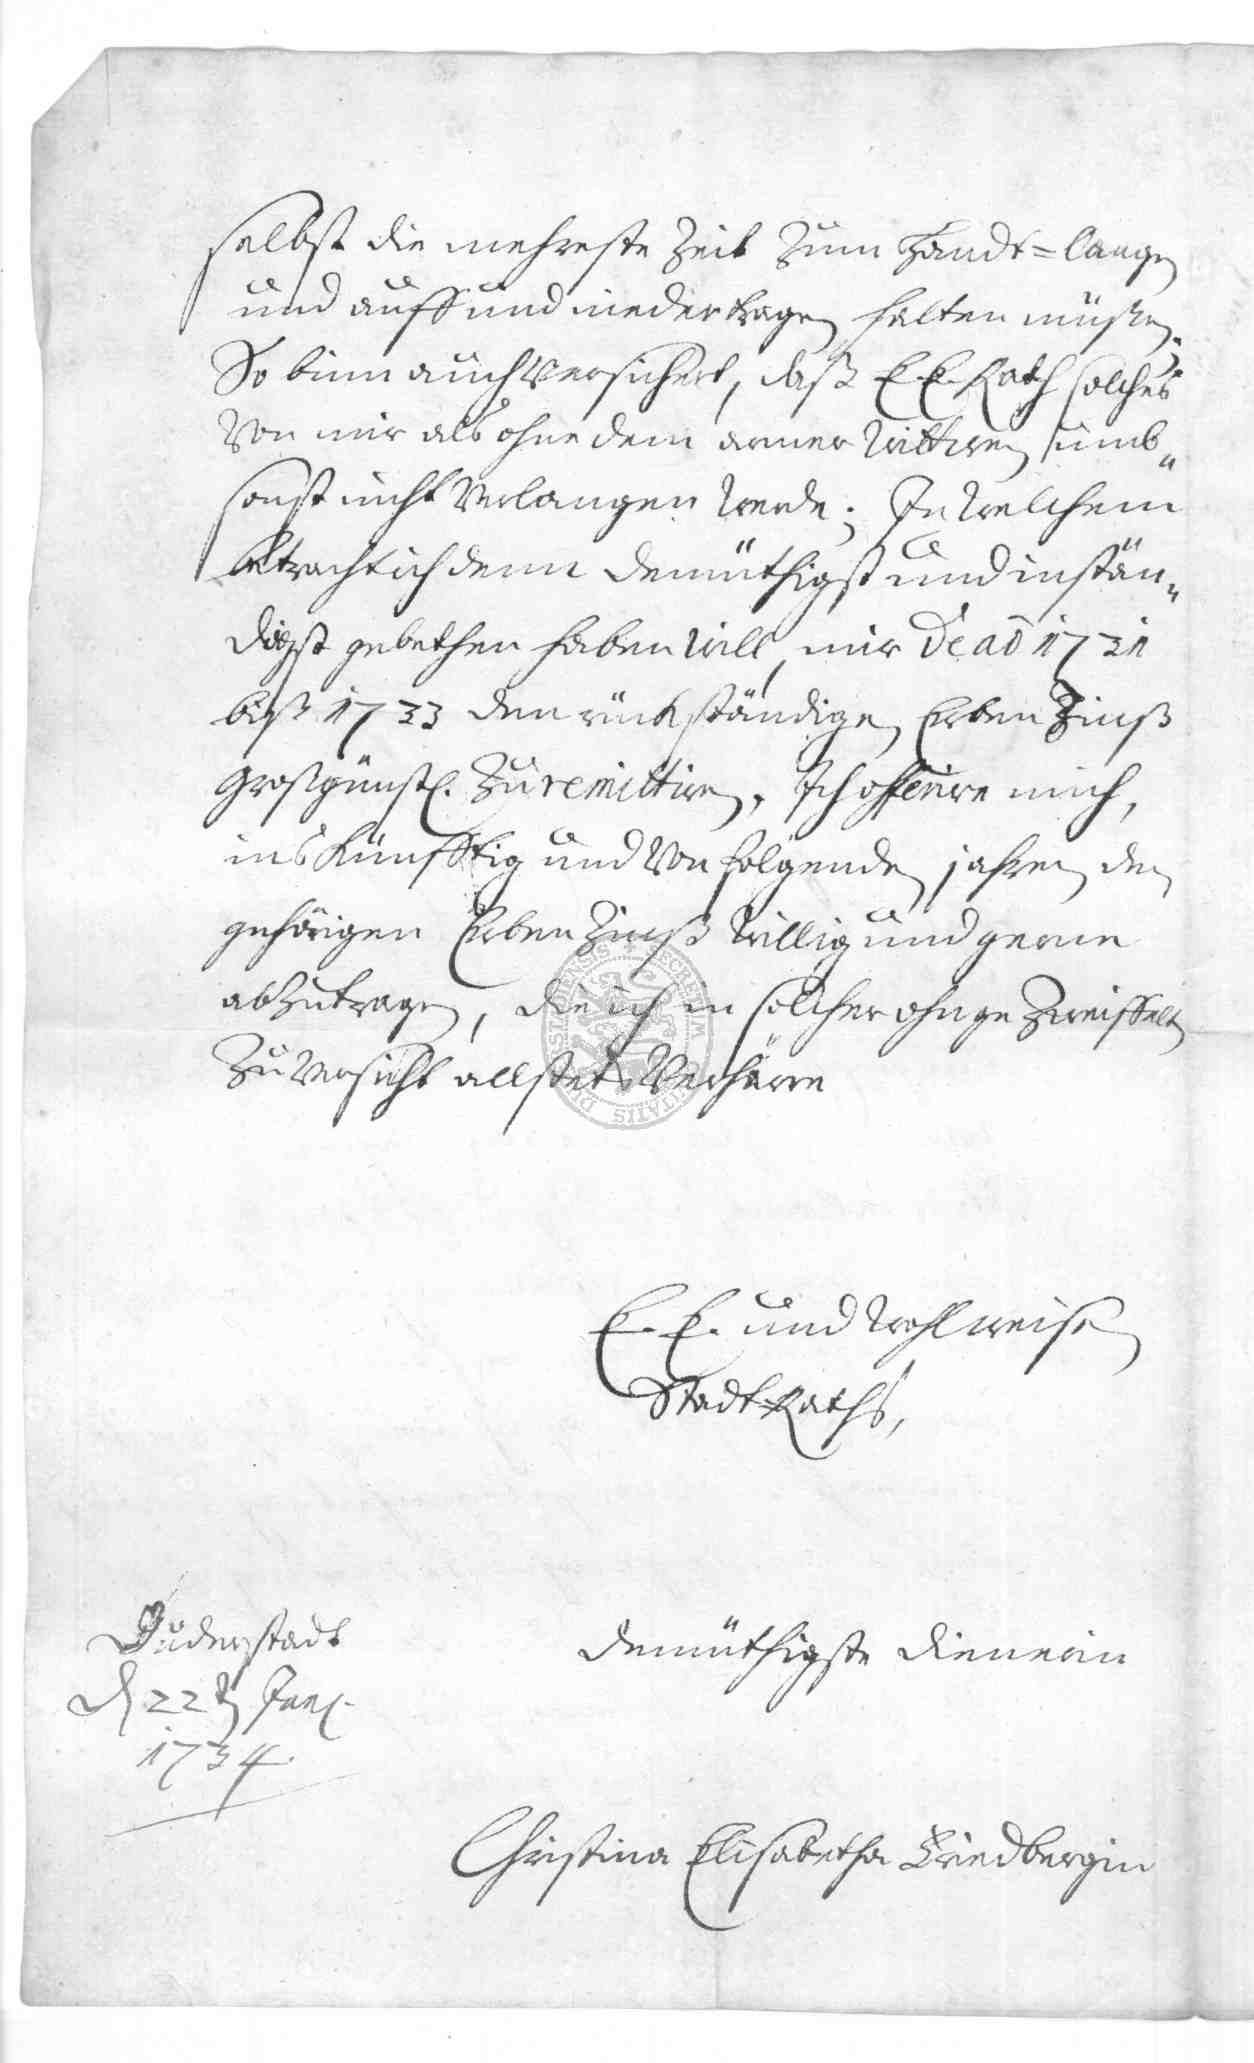 selbst die mehreste Zeit zum Handt=langen
und auff und nieder tragen halten müßen.
So binn auch versichert, daß E E Rath solches
von mir als ohne dem armer Wittwen umb„
sonst nicht verlangen werde; In welchem
betracht ich denn demüthigst und instän„
digst gebethen haben will, mir de aō 1731
biß 1733 den rückständigen Erben Zinß
großgünstl. zu remittiren, Ich offerire mich,
ins künfftig und von folgenden jahren den
gehörigen Erben Zinß willig und gerne
abzutragen, die ich in solcher ohngezweiffelten
Zuversicht allstets verharre
E. E. und Wohlweisen
Stadt Raths,
Duderstadt
d 22t Jan.
1734
demüthigste dienerin
Christina Elisabetha Friedbergin